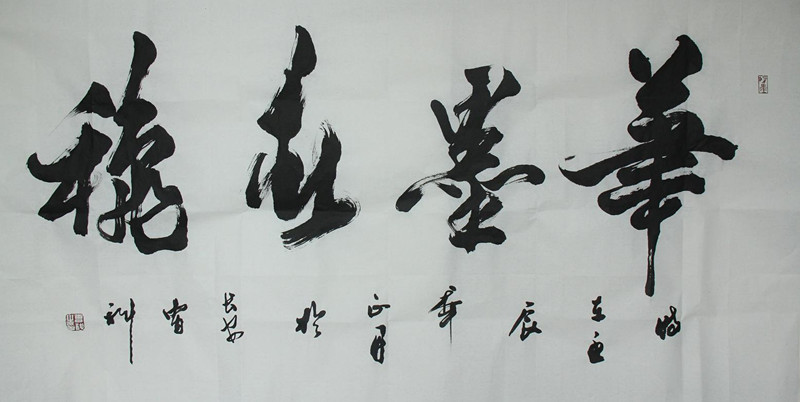 華墨春穐
時在壬辰年正月於長安